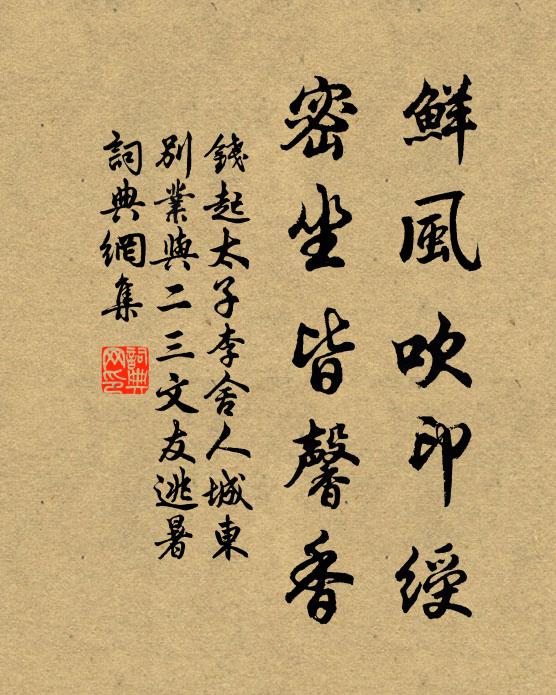 鮮風吹印綬
密坐皆馨香
錢起太子李舍人城東
別業與二三文友逃暑
詞典網集
詞典网印